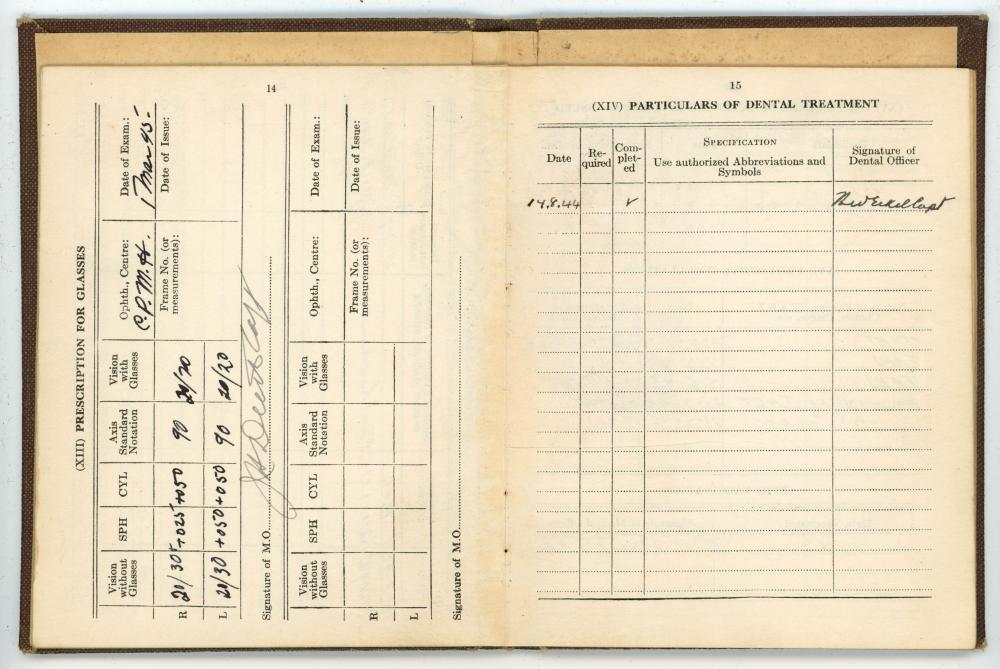 14
(XIII) PRESCRIPTION FOR GLASSES
Vision without Glasses SPH CYL Axis Standard Notation Vision with Glasses Ophth., Centre: Date of Exam.:
C.P.M.H. 1 Mar 45-
R 20/30 +025 +050 90 20/20 Frame No. (or measurements): Date of Issue:
L 20/30 +050 +050 90 20/20
Signature of M.O.
Vision without Glasses SPH CYL Axis Standard Notation Vision with Glasses Ophth., Centre: Date of Exam.:
R Frame No. (or measurements): Date of Issue:
L
Signature of M.O.
15
(XIV) PARTICULARS OF DENTAL TREATMENT
Date Re-quired Com-plet-ed SPECIFICATION Use authorized Abbreviations and Symbols Signature of Dental Officer
8.44 ✓ Capt